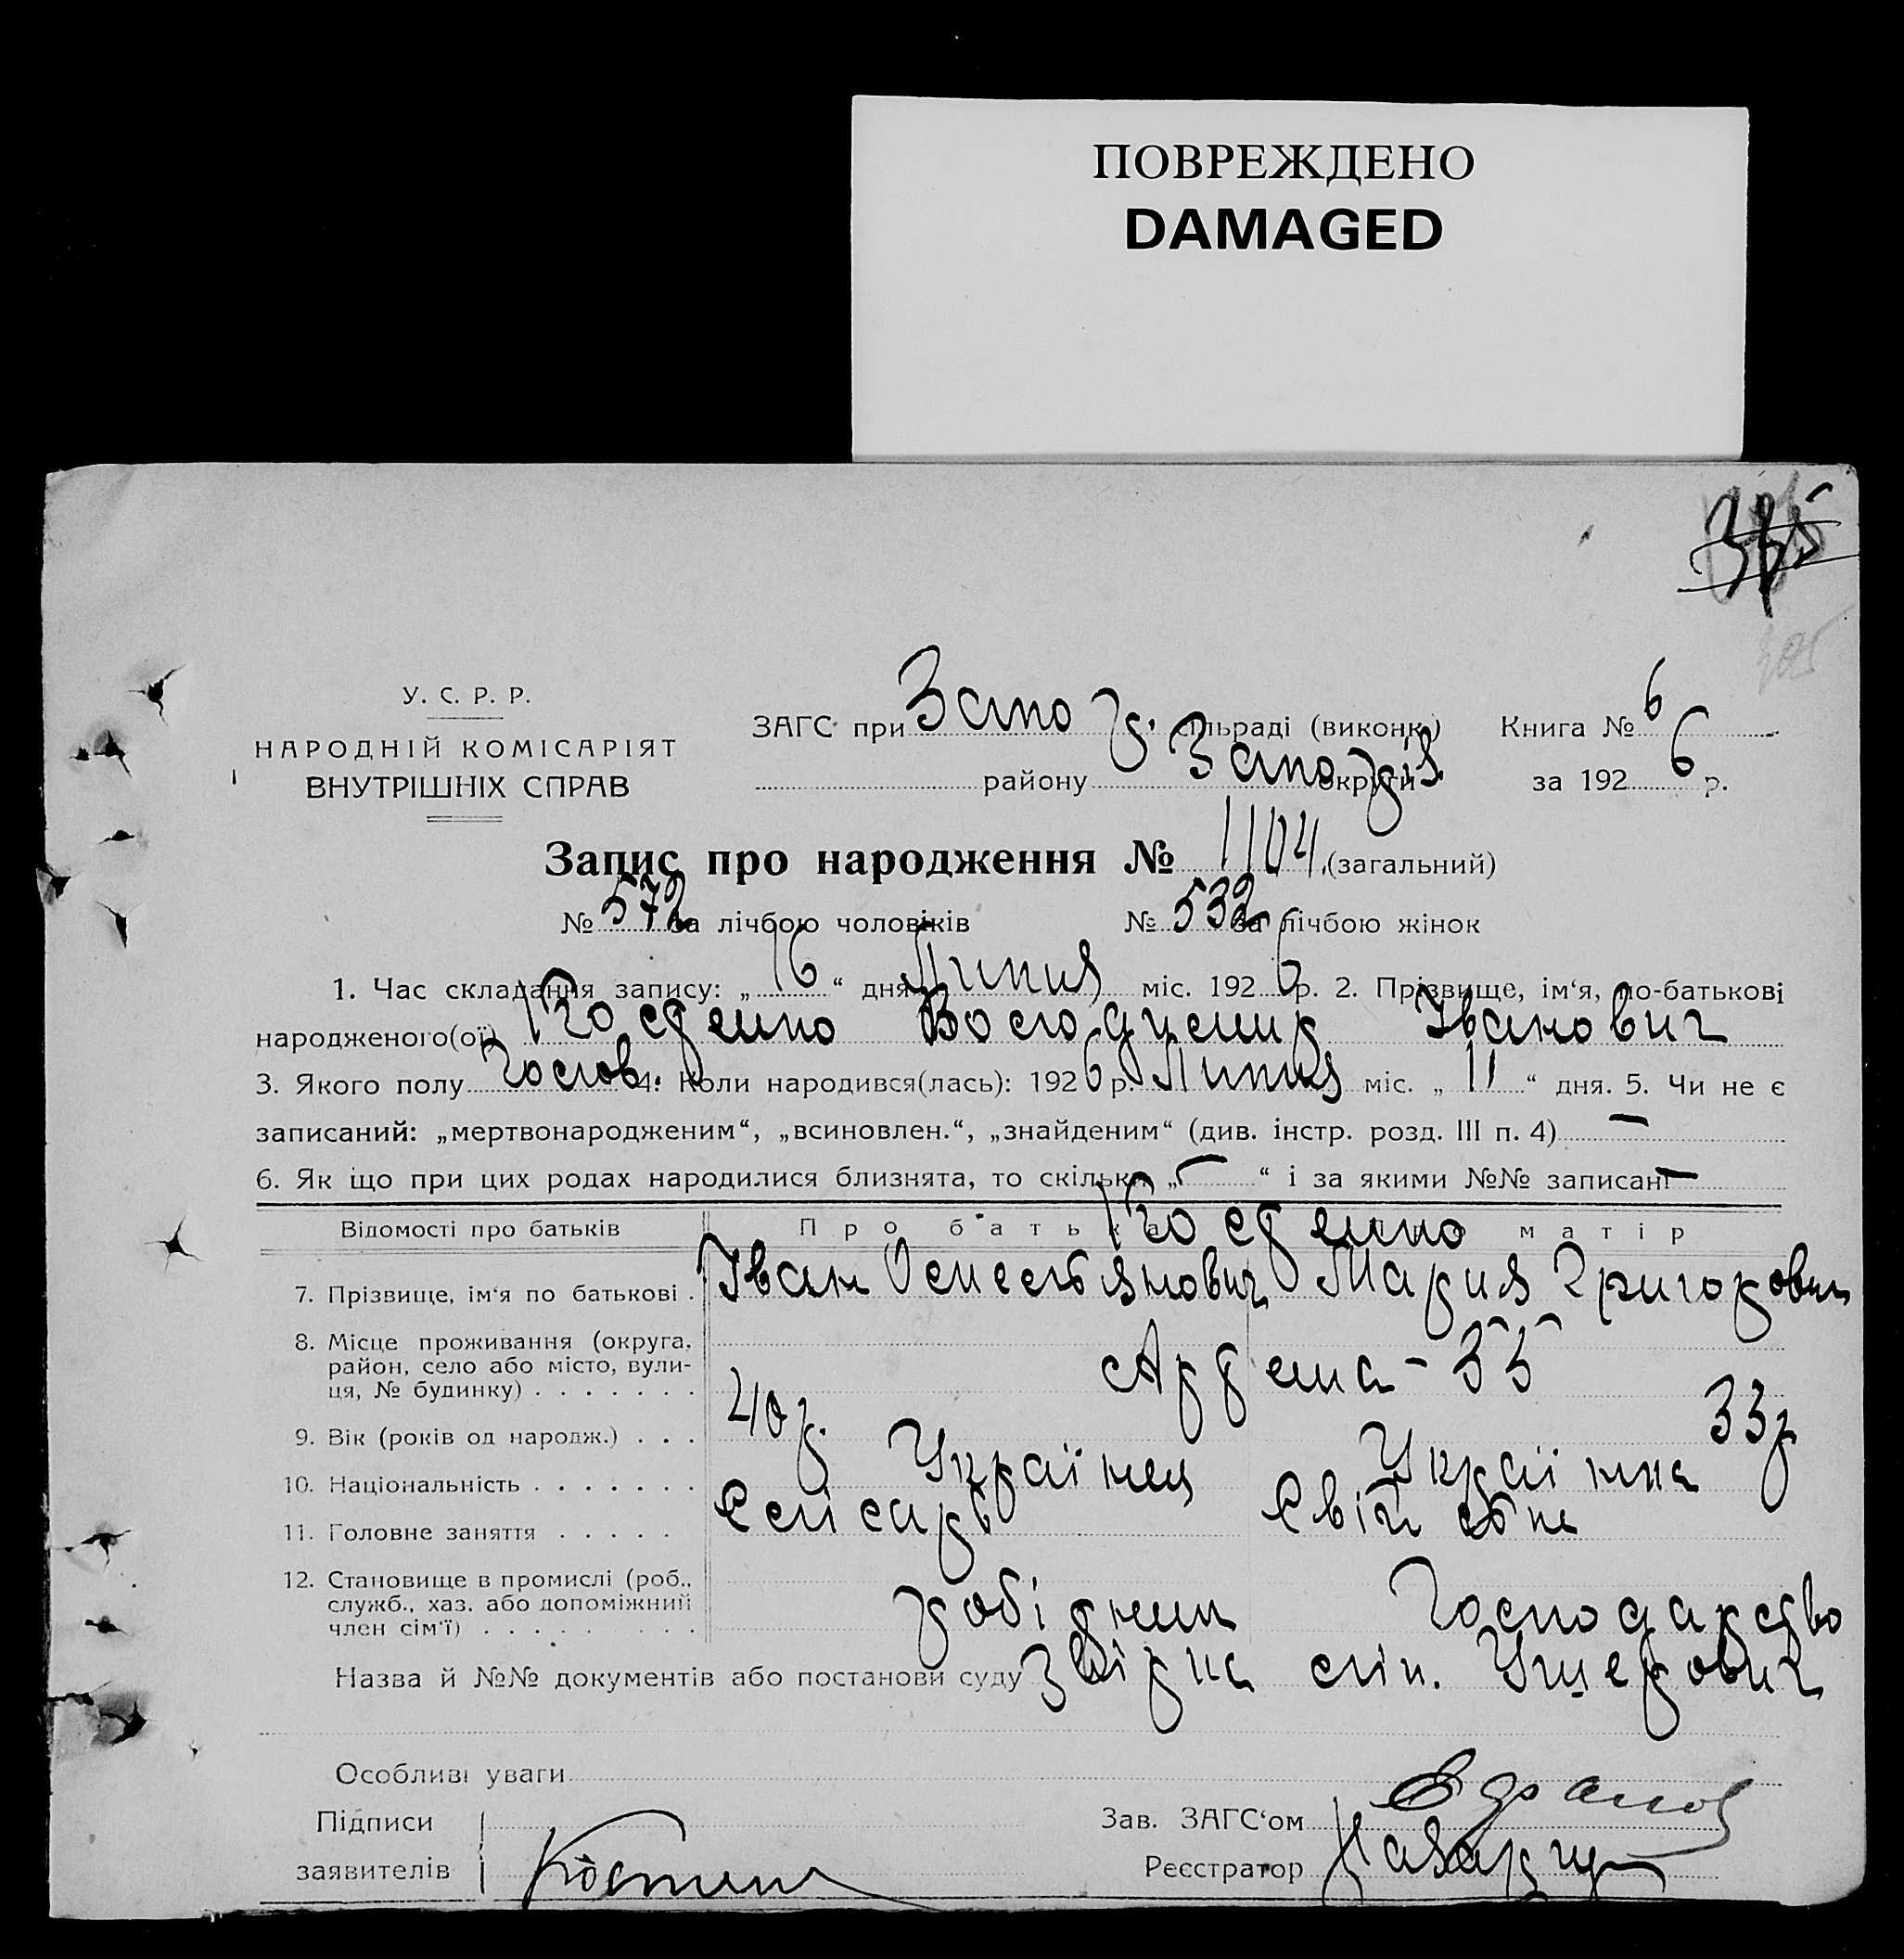 ПОВРЕЖДЕНО
DAMAGED
У. С. Р. Р.
НАРОДНІЙ КОМІСАРІЯТ
ВНУТРІШНІХ СПРАВ
ЗАГС при Запо льраді (виконк.) Книга № 6
району Запо округи за 1926 р.
Запис про народження № 1104 (загальний)
№ 572 за лічбою чоловіків № 532 за лічбою жінок
1. Час складання запису: „16“ дня Липня міс. 1926 р. 2. Прізвище, ім‘я, по-батькові
народженого(ої) Володимир Іванович
3. Якого полу Чолов. 4. Коли народився(лась): 1926 р. Липня міс. „11“ дня. 5. Чи не є
записаний: „мертвонародженим“, „всиновлен.“, „знайденим“ (див. інстр. розд. III п. 4) —
6. Як що при цих родах народилися близнята, то скільки „—“ і за якими №№ записані —
Відомості про батьків Про батька матір
7. Прізвище, ім‘я по батькові . Іван Мария Григоровн
8. Місце проживання (округа,
район, село або місто, вули-
ця, № будинку) . . . . . . .
9. Вік (років од народж.) . . . 40 р. 33 р
10. Національність . . . . . . . Українец Українка
11. Головне заняття . . . . . Слісарь
12. Становище в промислі (роб.,
служб., хаз. або допоміжний
член сім‘ї) . . . . . . . . . робідник Господарство
Назва й №№ документів або постанови суду
Особливі уваги
Підписи
заявителів
Зав. ЗАГС‘ом
Реєстратор